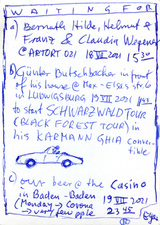 WAITING FOR
a) Bernuth Hilde, Helmut &
Franz & Claudia Wegener
@ ARTORT 021 18 VII 2021 15 30
b) Günter Butschbacher in front
of his house @ Max-Elsas str. 6
in LUDWIGSBURG 19 VII 2021
to start SCHWARZWALDTOUR
(BLACK FOREST TOUR) in
his KARMANN GHIA conver-
tible
c) our beer @ the Casino
in Baden-Baden 19 VII 2021
(Monday & Corona 23 45
→ very few pple)